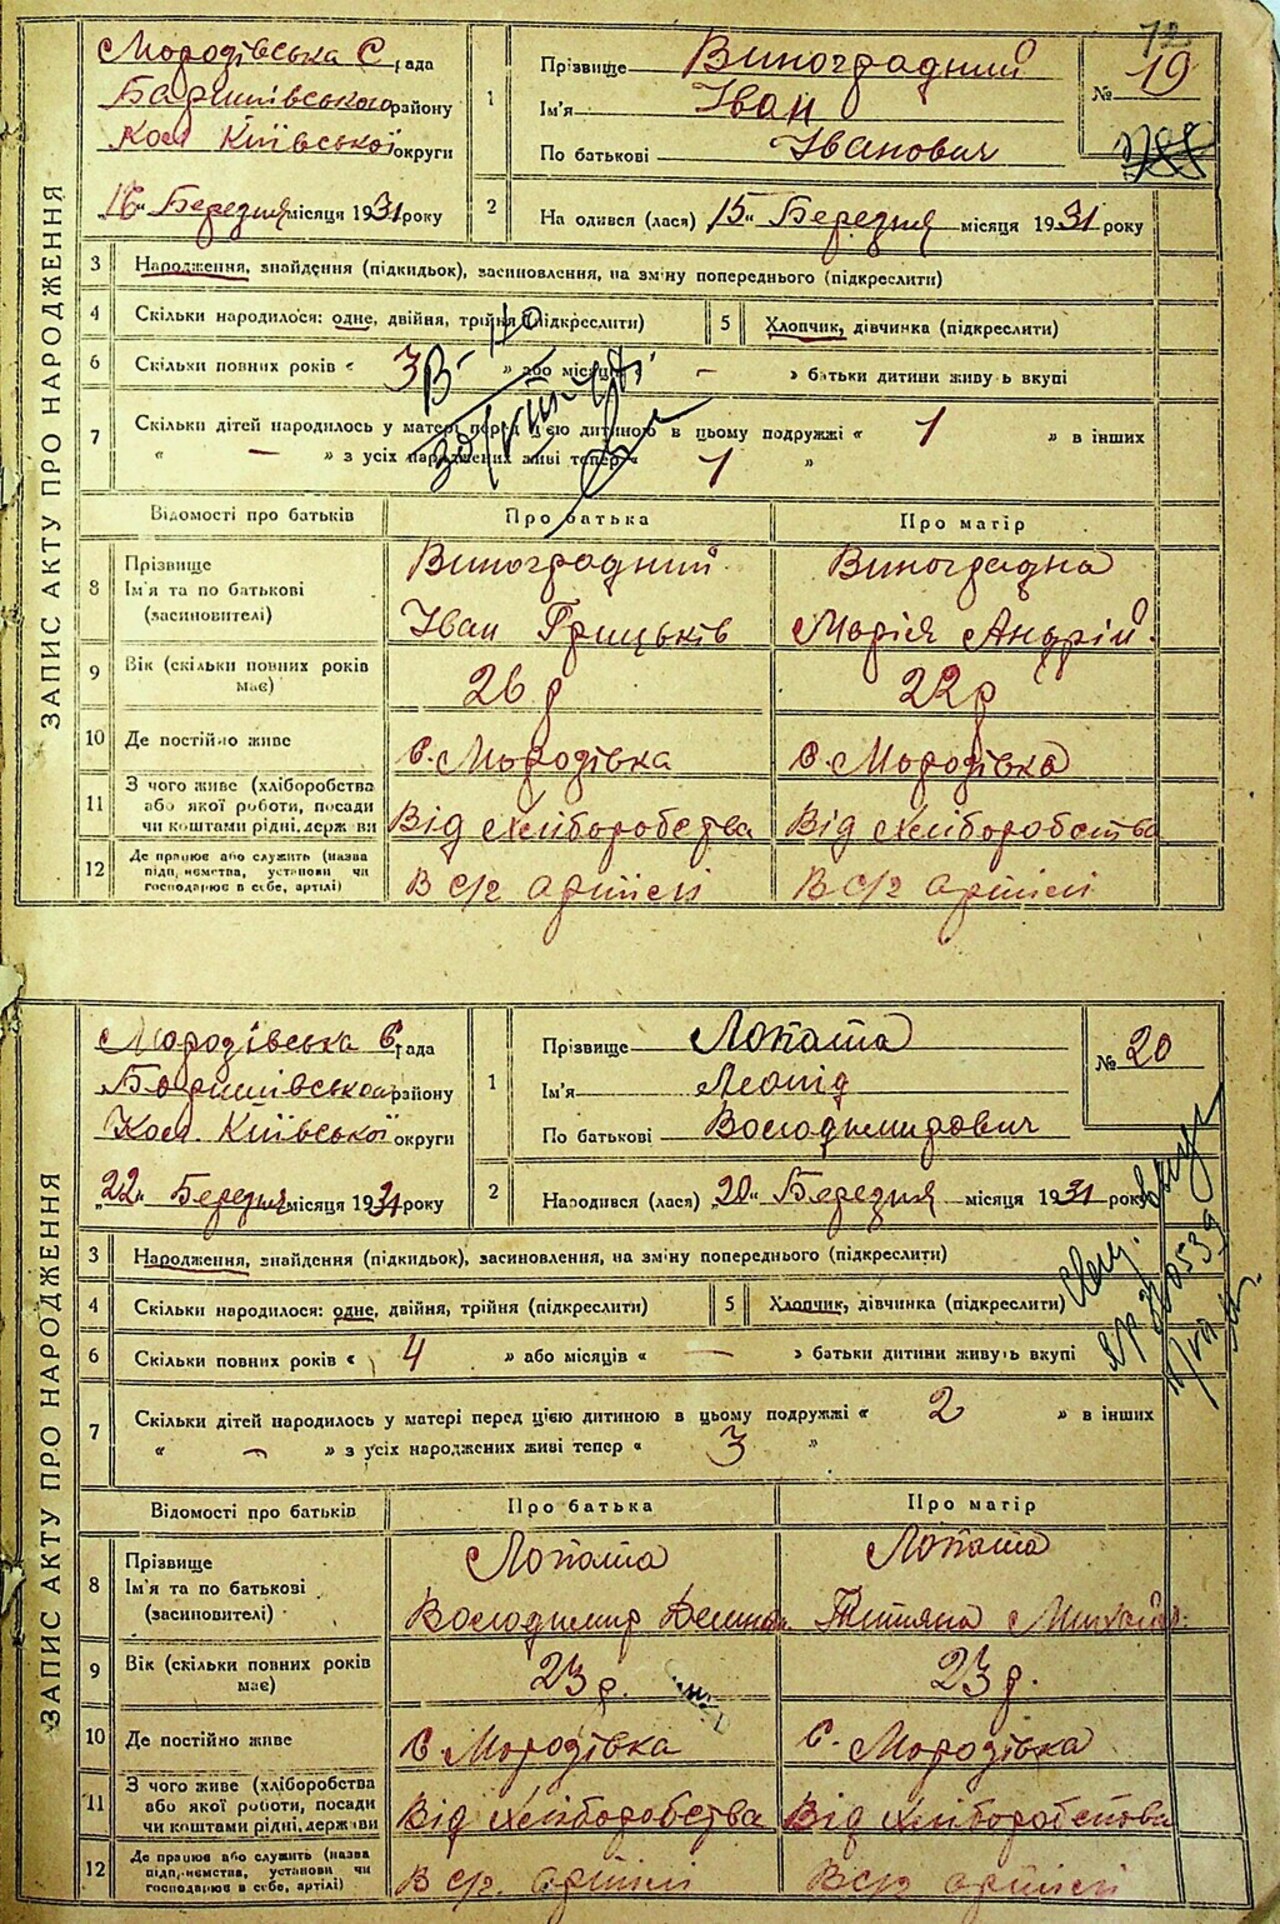 72
Мороzівська С. рада
Баришівського району
Кол Київської округи
„16“ Березня місяця 1931 року
1
Прізвище Виноградний
Ім'я Іван
По батькові Іванович
№ 19
2
На одився (лася) 15„ Березня місяця 1931 року
ЗАПИС АКТУ ПРО НАРОДЖЕННЯ
3 Народження, знайдення (підкидьок), засиновлення, на зміну попереднього (підкреслити)
4 Скільки народилося: одне, двійня, трійня (підкреслити)
5 Хлопчик, дівчинка (підкреслити)
6 Скільки повних років « 3 » або місяців – » батьки дитини живу ь вкупі
7 Скільки дітей народилось у матері перед цією дитиною в цьому подружжі « 1 » в інших
« – » з усіх народжених живі тепер « 1 »
Відомості про батьків Про батька Про матір
8 Прізвище
Ім'я та по батькові
(засиновителі)
Виноградний
Іван Грицьків
Виноградна
Марія Андрій.
9 Вік (скільки повних років
має)
26 р
22 р
10 Де постійно живе с. Мороzівка с. Мороzівка
11 З чого живе (хліборобства
або якої роботи, посади
чи коштами рідні, держ ви
Від хліборобства Від хліборобства
12 Де працює або служить (назва
підп, иємства, установи чи
господарює в себе, артілі)
В с/г артілі В с/г артілі
Мороzівська С. рада
Баришівського району
Кол. Київської округи
„22„ Березня місяця 1931 року
1
Прізвище Лопата
Ім'я Леонід
По батькові Володимирович
№ 20
2
Народився (лася) „20„ Березня місяця 1931 року
ЗАПИС АКТУ ПРО НАРОДЖЕННЯ
3 Народження, знайдення (підкидьок), засиновлення, на зміну попереднього (підкреслити)
4 Скільки народилося: одне, двійня, трійня (підкреслити)
5 Хлопчик, дівчинка (підкреслити)
6 Скільки повних років « 4 » або місяців « – » батьки дитини живуть вкупі
7 Скільки дітей народилось у матері перед цією дитиною в цьому подружжі « 2 » в інших
« – » з усіх народжених живі тепер « 3 »
Відомості про батьків Про батька Про матір
8 Прізвище
Ім'я та по батькові
(засиновителі)
Лопата
Володимир
Лопата
Титяна Михайл.
9 Вік (скільки повних років
має)
23 р.
23 р.
10 Де постійно живе с. Мороzівка с. Мороzівка
11 З чого живе (хліборобства
або якої роботи, посади
чи коштами рідні, держ ви
Від хліборобства Від хліборобства
12 Де працює або служить (назва
підп, иємства, установи чи
господарює в себе, артілі)
В с/г. артілі В с/г артілі